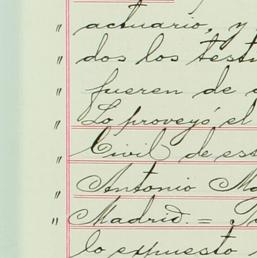 " actuario, y
" dos los test
" fueren de
" Lo proveyó el
" Civil de es
" Antonio Ma
" Madrid. =
lo expuesto